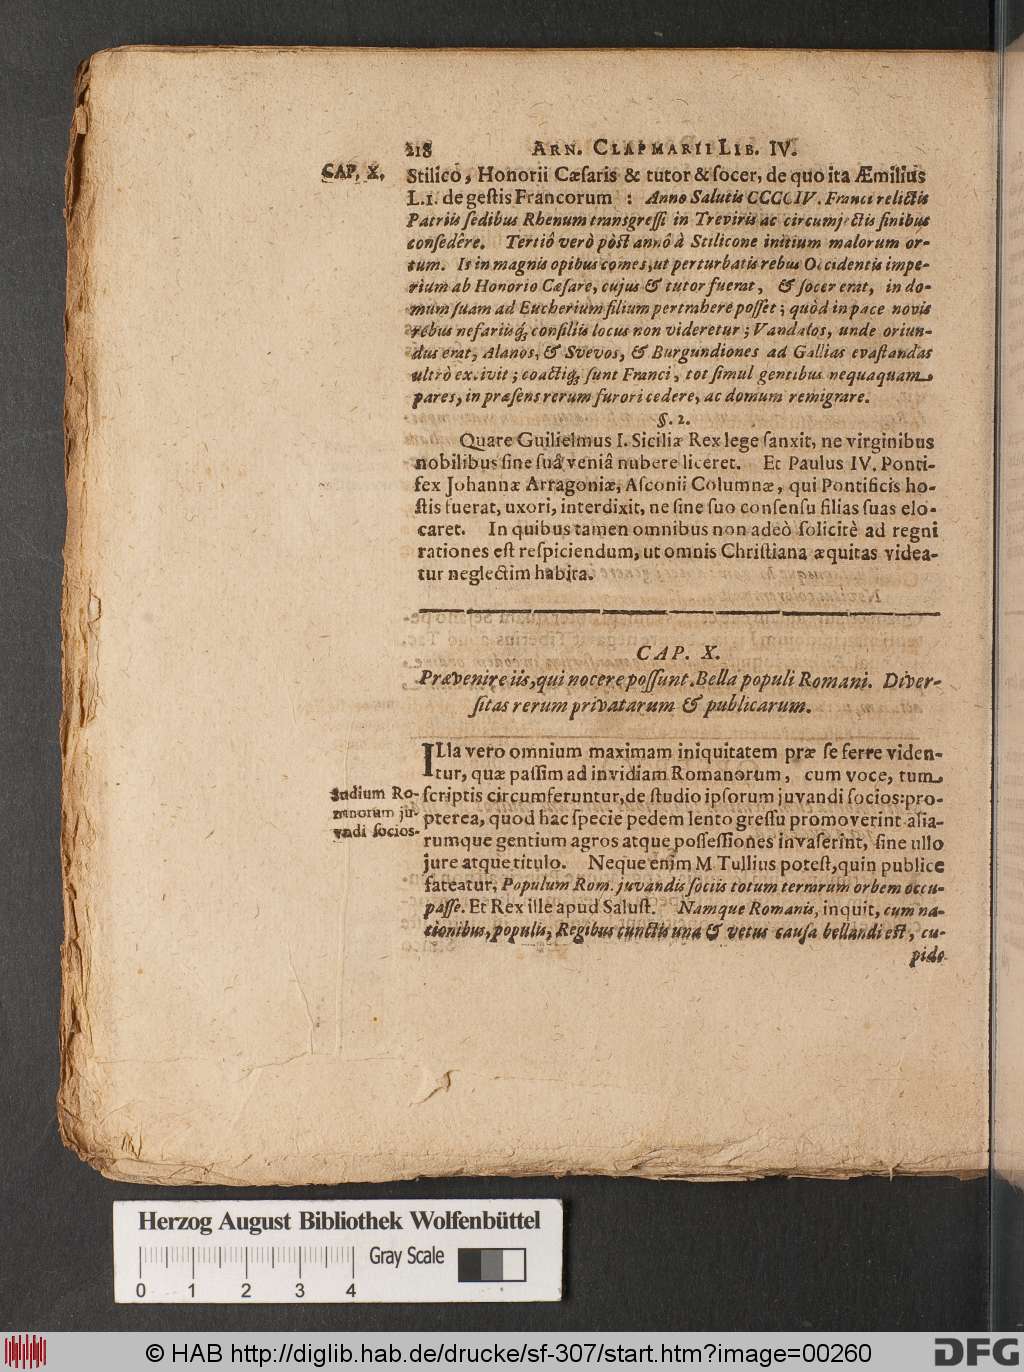 218 ARN. CLAPMARII LIB. IV.
CAP. X.
Stilico, Honorii Cæſaris & tutor & ſocer, de quo ita Æmilius
L.1. de geſtis Francorum : Anno Salutis CCCCIV. Franci relictis
Patriis ſedibus Rhenum transgreſſi in Treviris ac circumjectis finibus
conſedêre. Tertiô verò pòst annô à Stilicone initium malorum or-
tum. Is in magnis opibus comes, ut perturbatis rebus Occidentis impe-
rium ab Honorio Cæſare, cujus & tutor fuerat, & ſocer erat, in do-
mum ſuam ad Eucherium filium pertrahere poſſet; quòd in pace novis
rebus nefariisq́; conſiliis locus non videretur; Vandalos, unde oriun-
dus erat, Alanos, & Svevos, & Burgundiones ad Gallias evaſtandas
ultrò excivit; coactiq́; ſunt Franci, tot ſimul gentibus nequaquam
pares, in præſens rerum furori cedere, ac domum remigrare.
§. 2.
Quare Guilielmus I. Siciliæ Rex lege ſanxit, ne virginibus
nobilibus ſine ſuâ veniâ nubere liceret. Et Paulus IV. Ponti-
fex Johannæ Arragoniæ, Aſconii Columnæ, qui Pontificis ho-
ſtis fuerat, uxori, interdixit, ne ſine ſuo conſenſu filias ſuas elo-
caret. In quibus tamen omnibus non adeò ſolicitè ad regni
rationes eſt reſpiciendum, ut omnis Chriſtiana æquitas videa-
tur neglectim habita.
CAP. X.
Prævenire iis, qui nocere poſſunt. Bella populi Romani. Diver-
ſitas rerum privatarum & publicarum.
ILla vero omnium maximam iniquitatem præ ſe ferre viden-
tur, quæ paſſim ad invidiam Romanorum, cum voce, tum
Studium Ro-
manorum ju-
vandi ſocios.
ſcriptis circumferuntur, de ſtudio ipſorum juvandi ſocios: pro-
pterea, quod hac ſpecie pedem lento greſſu promoverint alia-
rumque gentium agros atque poſſeſſiones invaſerint, ſine ullo
jure atque titulo. Neque enim M Tullius poteſt, quin publice
fateatur, Populum Rom. juvandis ſociis totum terrarum orbem occu-
paſſe. Et Rex ille apud Saluſt. Namque Romanis, inquit, cum na-
tionibus, populis, Regibus cunctis una & vetus cauſa bellandi eſt, cu-
pido
Herzog August Bibliothek Wolfenbüttel
Gray Scale
0 1 2 3 4
© HAB http://diglib.hab.de/drucke/sf-307/start.htm?image=00260
DFG